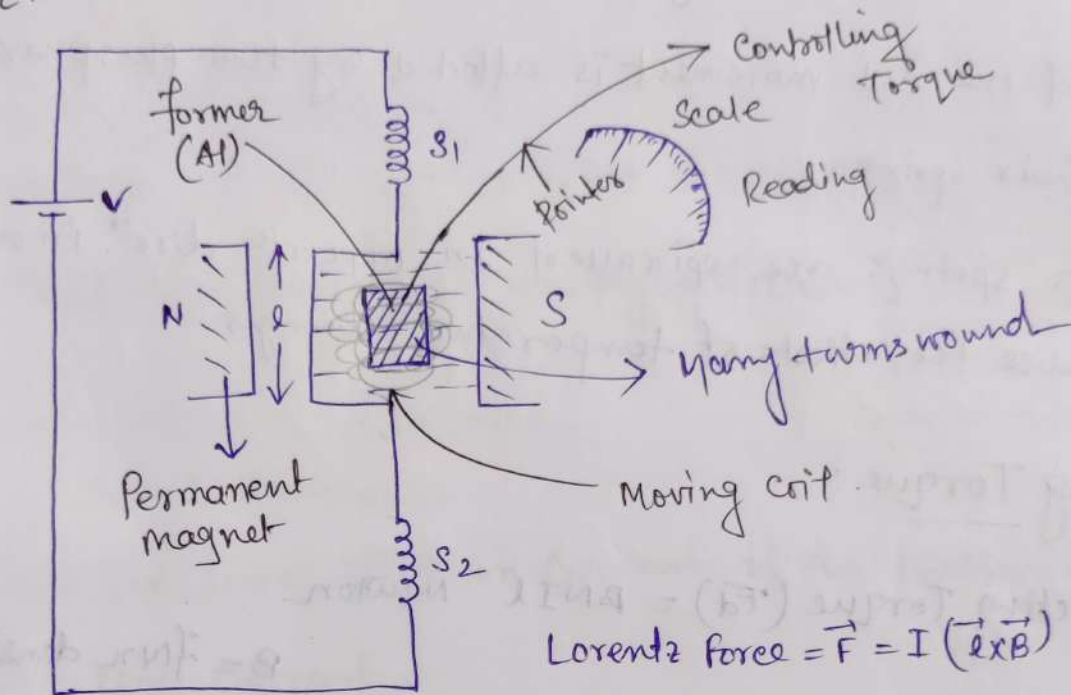 Controlling
Torque
former
(Al)
S1
Scale
Pointer
Reading
V
N
l
S
Many turns wound
Permanent
magnet
Moving coil.
S2
Lorentz force = F⃗ = I (l⃗×B⃗)